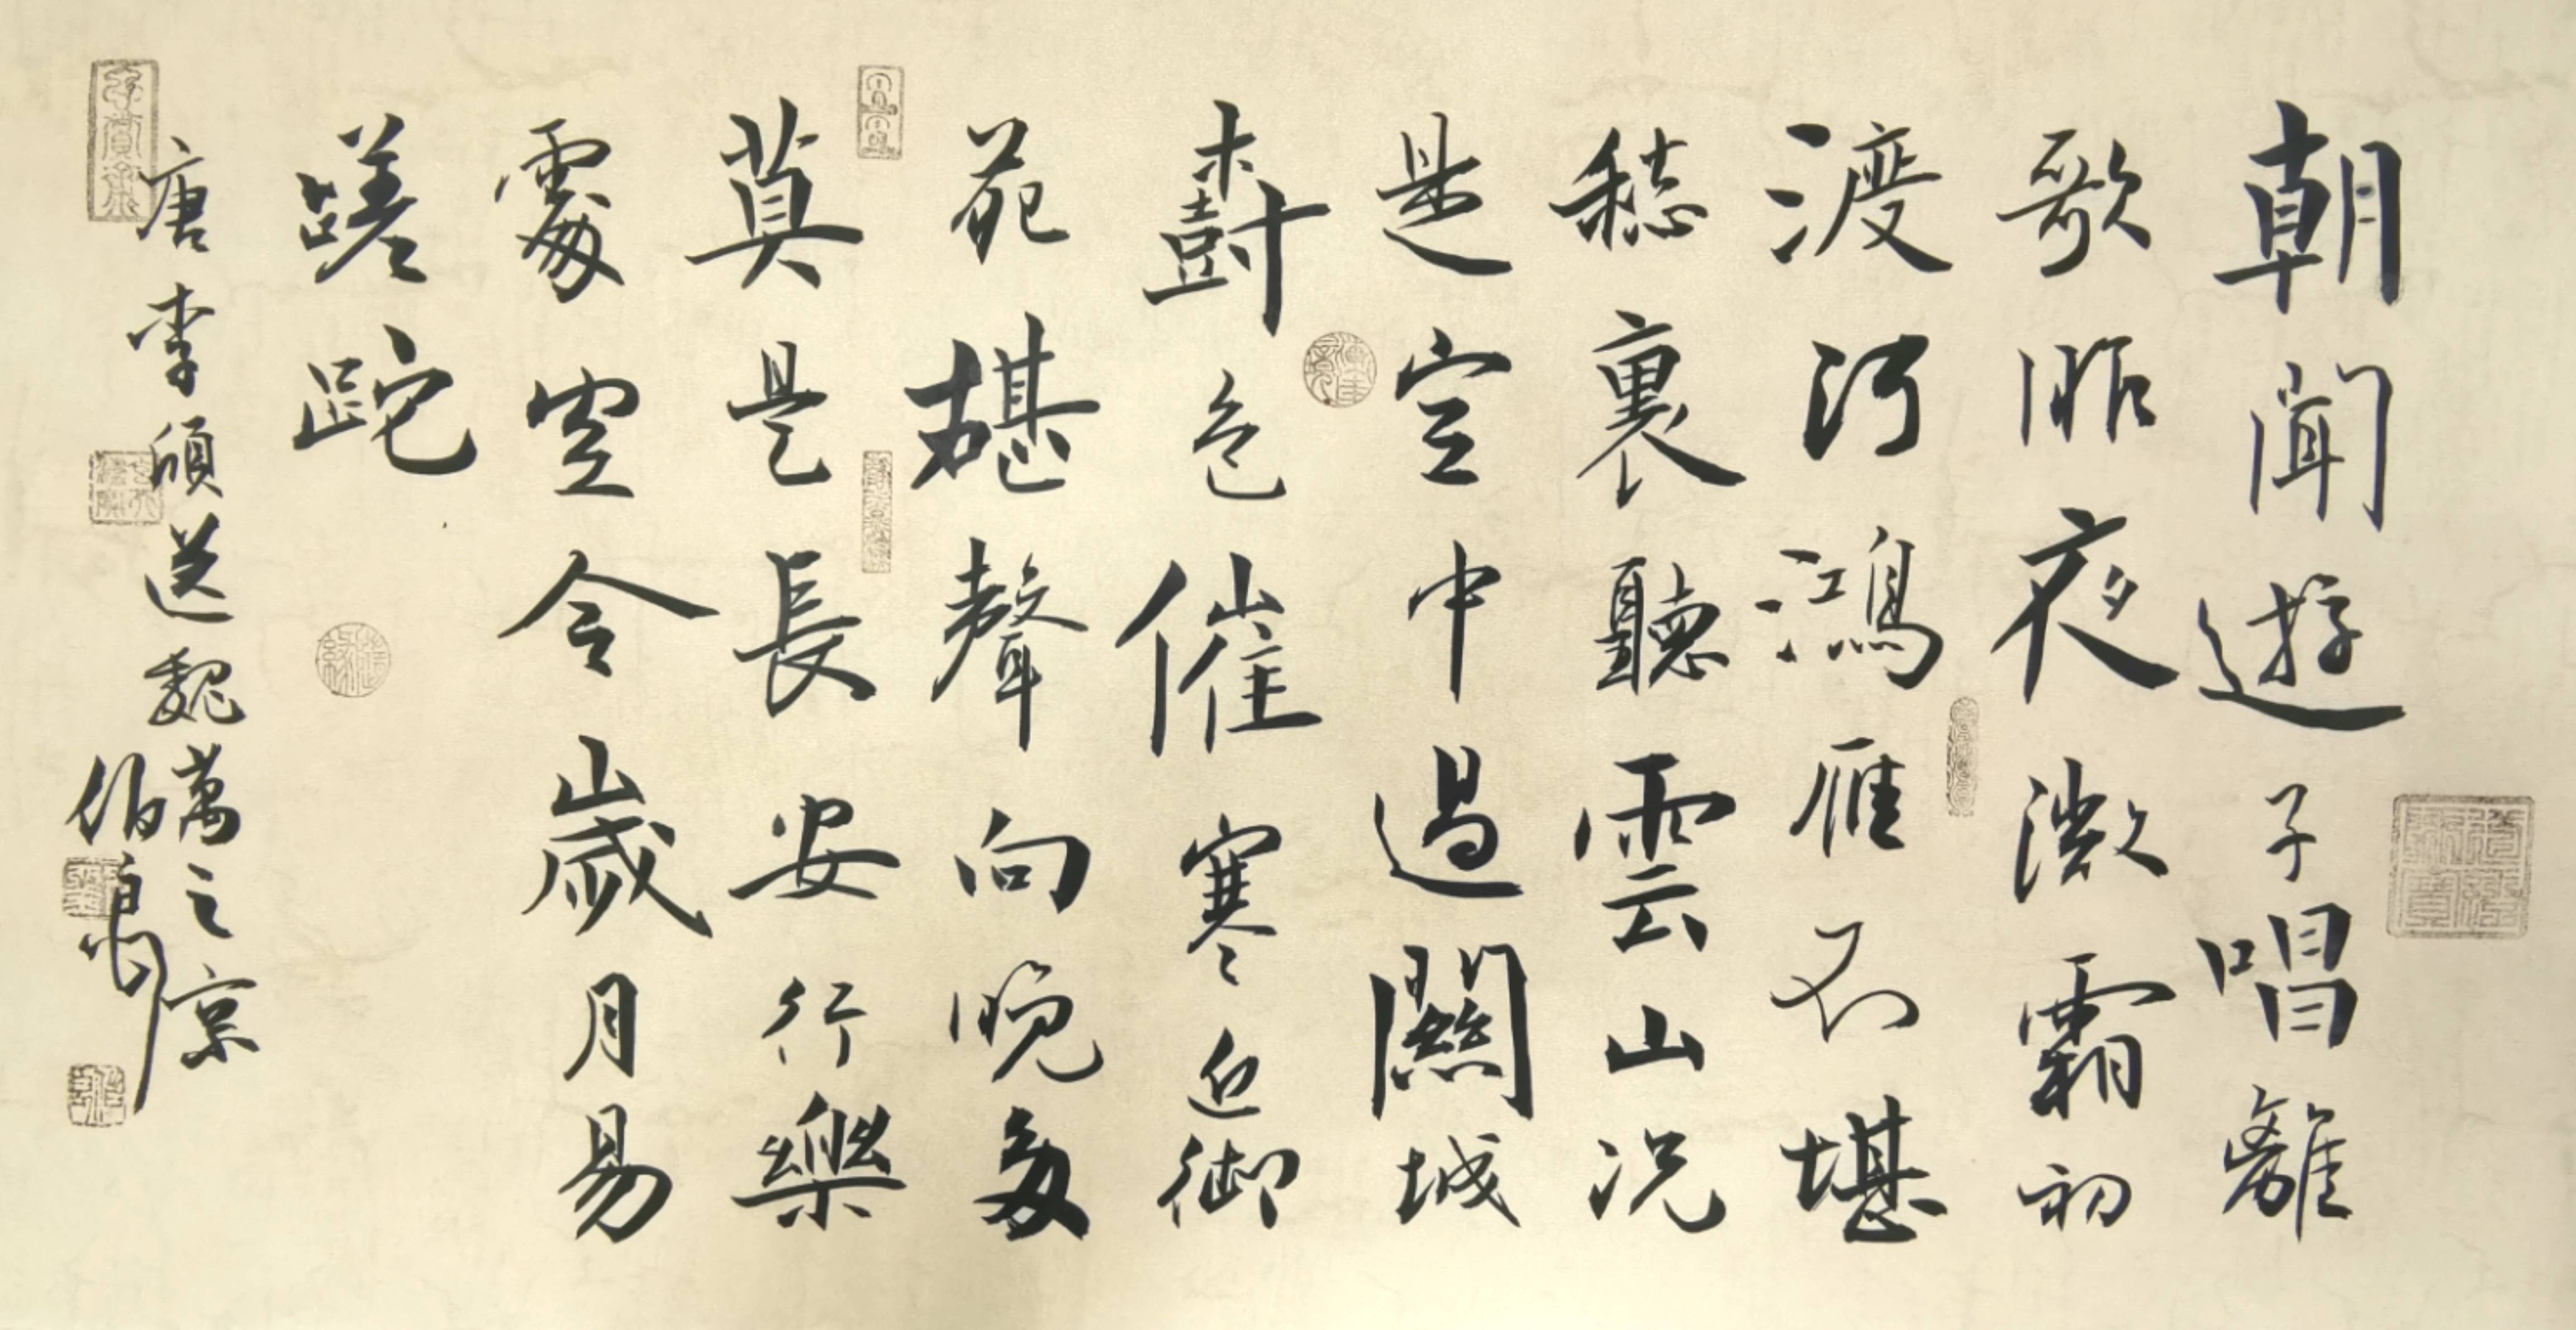 朝聞遊子唱離
歌昨夜微霜初
渡河鴻雁不堪
愁裏聽雲山況
是客中過關城
樹色催寒近御
苑碪聲向晚多
莫是長安行樂
處空令歲月易
蹉跎
唐李頎送魏萬之京
伯